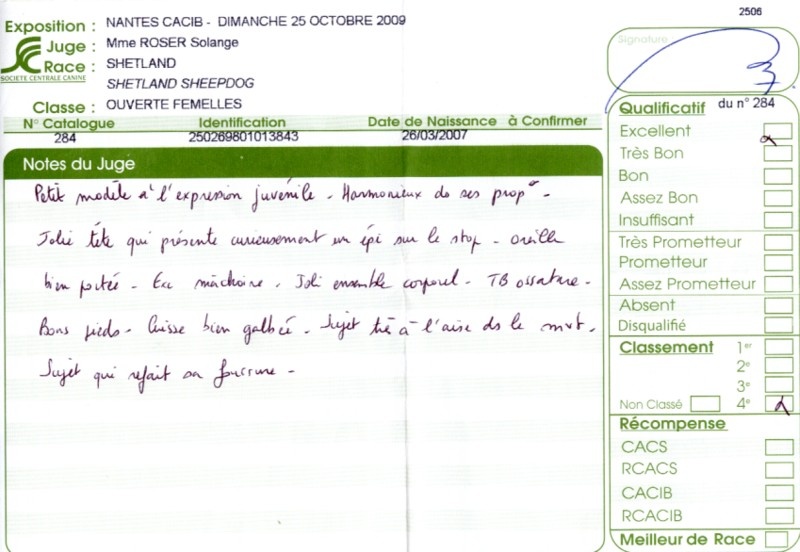 2506
Exposition : NANTES CACIB - DIMANCHE 25 OCTOBRE 2009
Juge : Mme ROSER Solange
Race : SHETLAND
SOCIETE CENTRALE CANINE
SHETLAND SHEEPDOG
Classe : OUVERTE FEMELLES
N° Catalogue Identification Date de Naissance à Confirmer
284 250269801013843 26/03/2007
Notes du Juge
Petit modèle à l'expression juvénile - Harmonieux ds ses prop° -
Jolie tête qui présente curieusement un épi sur le stop - oreille
bien portée - Exc mâchoire - Joli ensemble corporel - TB ossature -
Bons pieds - Cuisse bien galbée - Sujet très à l'aise ds le mvt -
Sujet qui refait sa fourrure -
Signature
Qualificatif du n° 284
Excellent
Très Bon
Bon
Assez Bon
Insuffisant
Très Prometteur
Prometteur
Assez Prometteur
Absent
Disqualifié
Classement 1er
2e
3e
Non Classé 4e
Récompense
CACS
RCACS
CACIB
RCACIB
Meilleur de Race